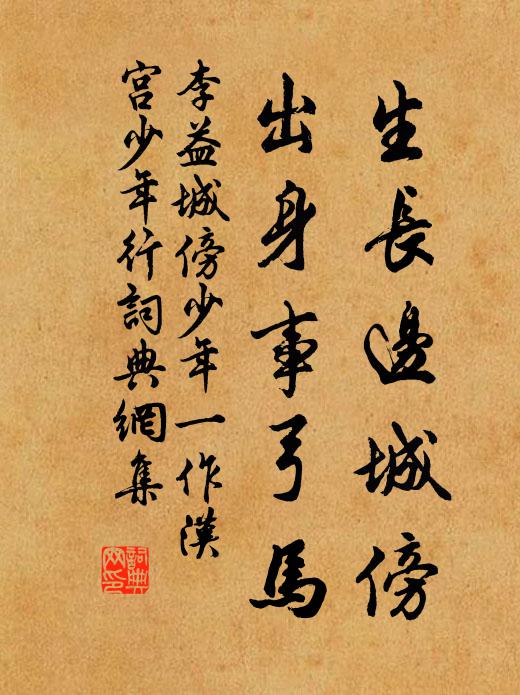 生長邊城傍
出身事弓馬
李益城傍少年一作漢
宫少年行詞典網集
詞典網印